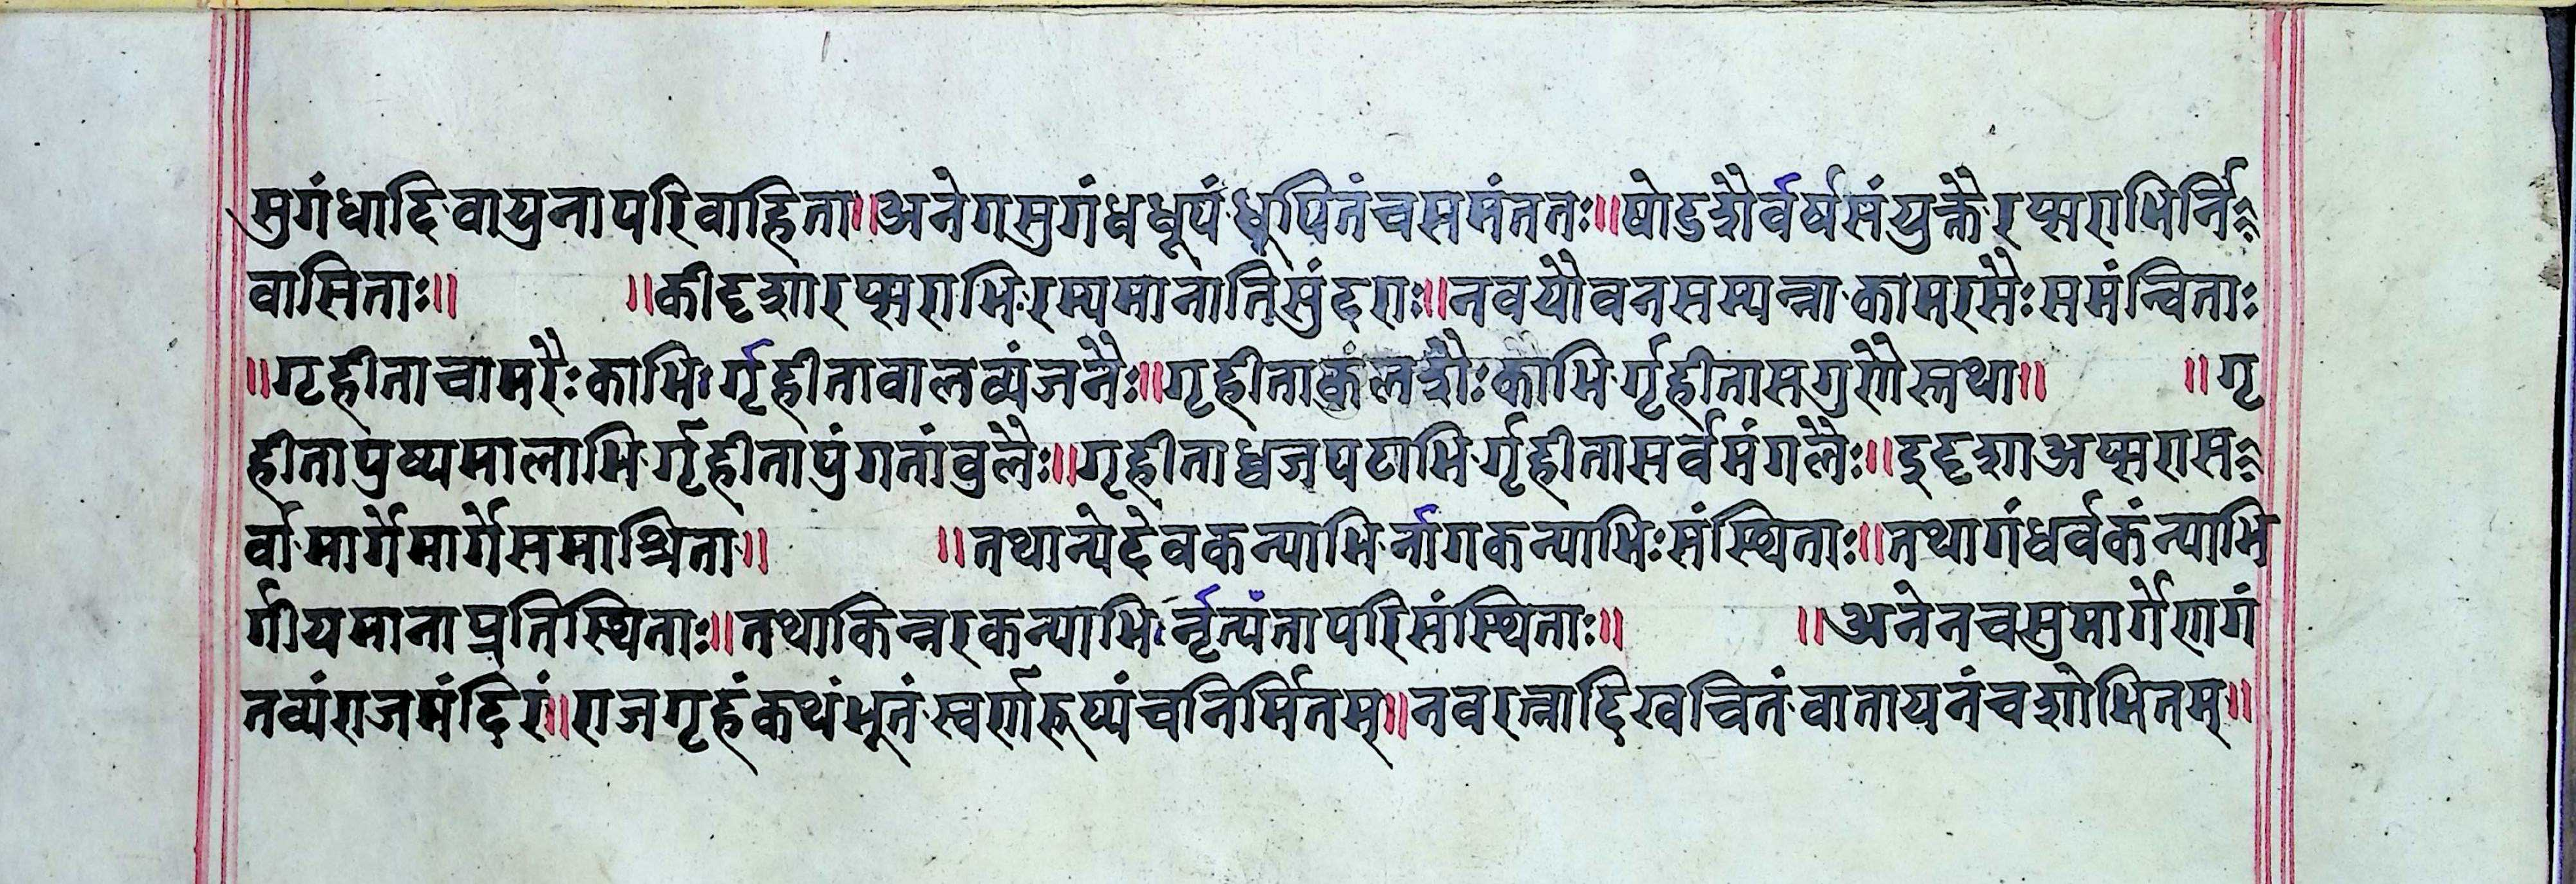 सुगंधादिवायुनापरिवाहिता॥अनेगसुगंधधूपंधूपितंचसमंततः॥षोडशैर्वर्षसंयुक्तैरप्सराभिर्नि
वासिताः॥ ॥कीदृशारप्सराभिरम्यमानातिसुंदराः॥नवयौवनसम्पन्नाकामरसैःसमंन्विताः
॥गृहीताचामरैःकाभिर्गृहीतावालव्यंजनैः॥गृहीताकंलशैःकाभिर्गृहीतासगुणैस्तथा॥ ॥गृ
हीतापुष्पमालाभिर्गृहीतापुंगतांवुलैः॥गृहीताध्वजपटाभिर्गृहीतासर्वमंगलैः॥दुदृशाअप्सरास
र्वामार्गेमार्गेसमाश्रिता॥ ॥तथान्येदेवकन्याभिर्नागकन्याभिःसंस्थिताः॥तथागंधर्वकंन्याभि
र्गीयमानाप्रतिस्थिताः॥तथाकिन्नरकन्याभिर्नृत्यंतापरिसंस्थिताः॥ ॥अनेनचसुमार्गेणगं
तव्यंराजमंदिरं॥राजगृहंकथंभूतंस्वर्णरूप्यंचनिर्मितम्॥नवरत्नादिखचितंवातायनंचशोभितम्॥